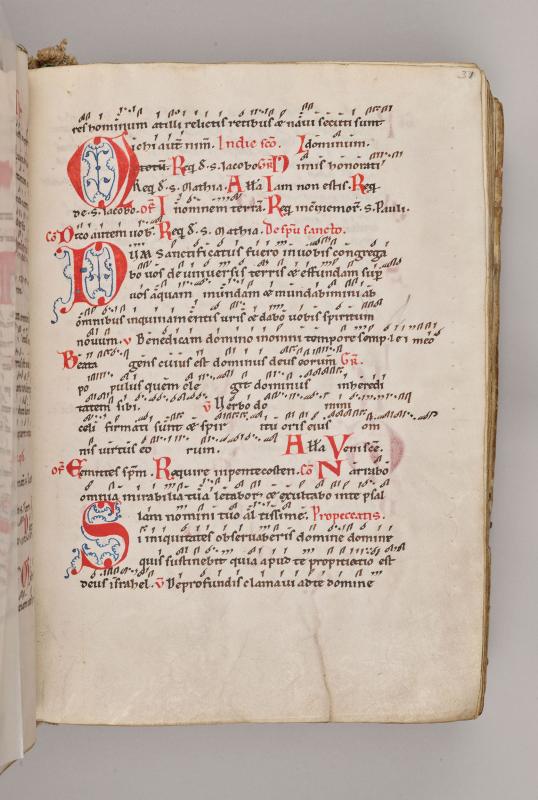 31
res hominum at illi relictis retibus & navi secuti sunt
Michi autē nim̄. In die sc̄o. I dominum.
totū. Req̄ d̄. s. Iacobo Gr̄ N imis honorati
Req̄ d̄. s. Mathia. Alła Iam non estis. Req̄
de. s. Iacobo. of̄ I nomnem terrā. Req̄ in cōmemor̄. s. Pauli.
Co D ico autem vob̄. Req̄ d̄. s. Mathia. De sp̄u sancto.
Dum sanctificatus fuero in vobis congrega
bo vos de universis terris & effundam sup̄
vos aquam mundam & mundabimini ab
omnibus inquinamentis vr̄is & dabo vobis spiritum
novum. v Benedicam domino in omni tempore semp le i meo
Beata gens cuius est dominus deus eorum Gr̄.
po pulus quem ele git dominus in heredi
tatem sibi. v Verbo do mini
celi firmati sunt & spir itu oris eius om
nis virtus eo rum. Alła Veni sc̄e.
of̄ Emittes sp̄m. Require in pentecosten. Co Narrabo
omnia mirabilia tua letabor & exultabo in te psal
lam nomini tuo altissime. Pro peccatis.
Si iniquitates observaberis domine domine
quis sustinebit quia apud te propitiatio est
deus israhel. v De profundis clamavi ad te domine